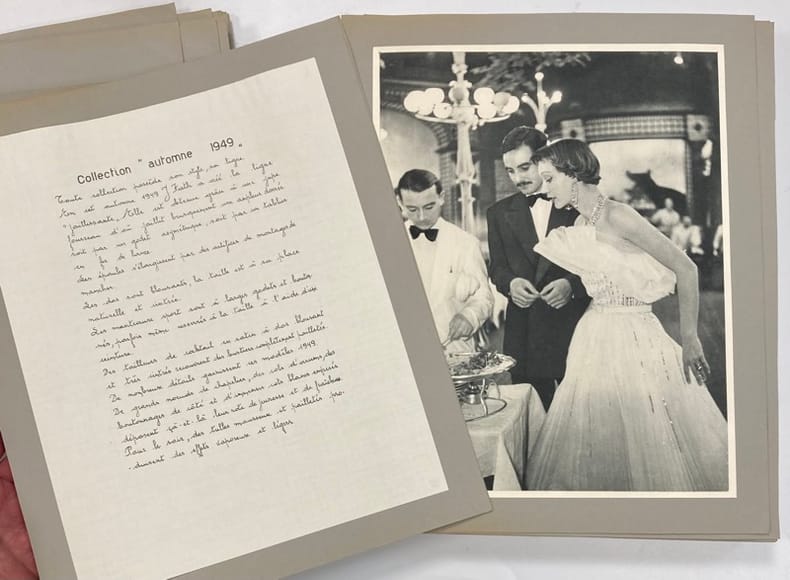 Collection "automne 1949"
Toute collection possède son style, sa ligne.
En cet automne 1949 J. Fath a créé la ligne
"jaillissante". Elle est obtenue grâce à une jupe
fourreau d'où jaillit brusquement un ampleur donnée
soit par un godet asymétrique, soit par un tablier
en fer de lance.
Les épaules s'élargissent par des artifices de montage de
manches.
Les dos sont blousants, la taille est à sa place
naturelle et cintrée.
Les manteaux sport sont à larges godets et bouton-
nés, parfois même resserrés à la taille à l'aide d'une
ceinture.
Des tailleurs de cocktail en satin à dos blousant
et très cintrés recouvrent des bustiers complètement pailletés.
De nombreux détails garnissent ses modèles 1949.
De grands nœuds de chapelier, des cols d'arums, des
boutonnages de côté et d'immenses cols blancs empesés
déposent çà et là leur note de jeunesse et de fraîcheur.
Pour le soir, des tulles mousseux et pailletés pro-
-duisent des effets vaporeux et légers.